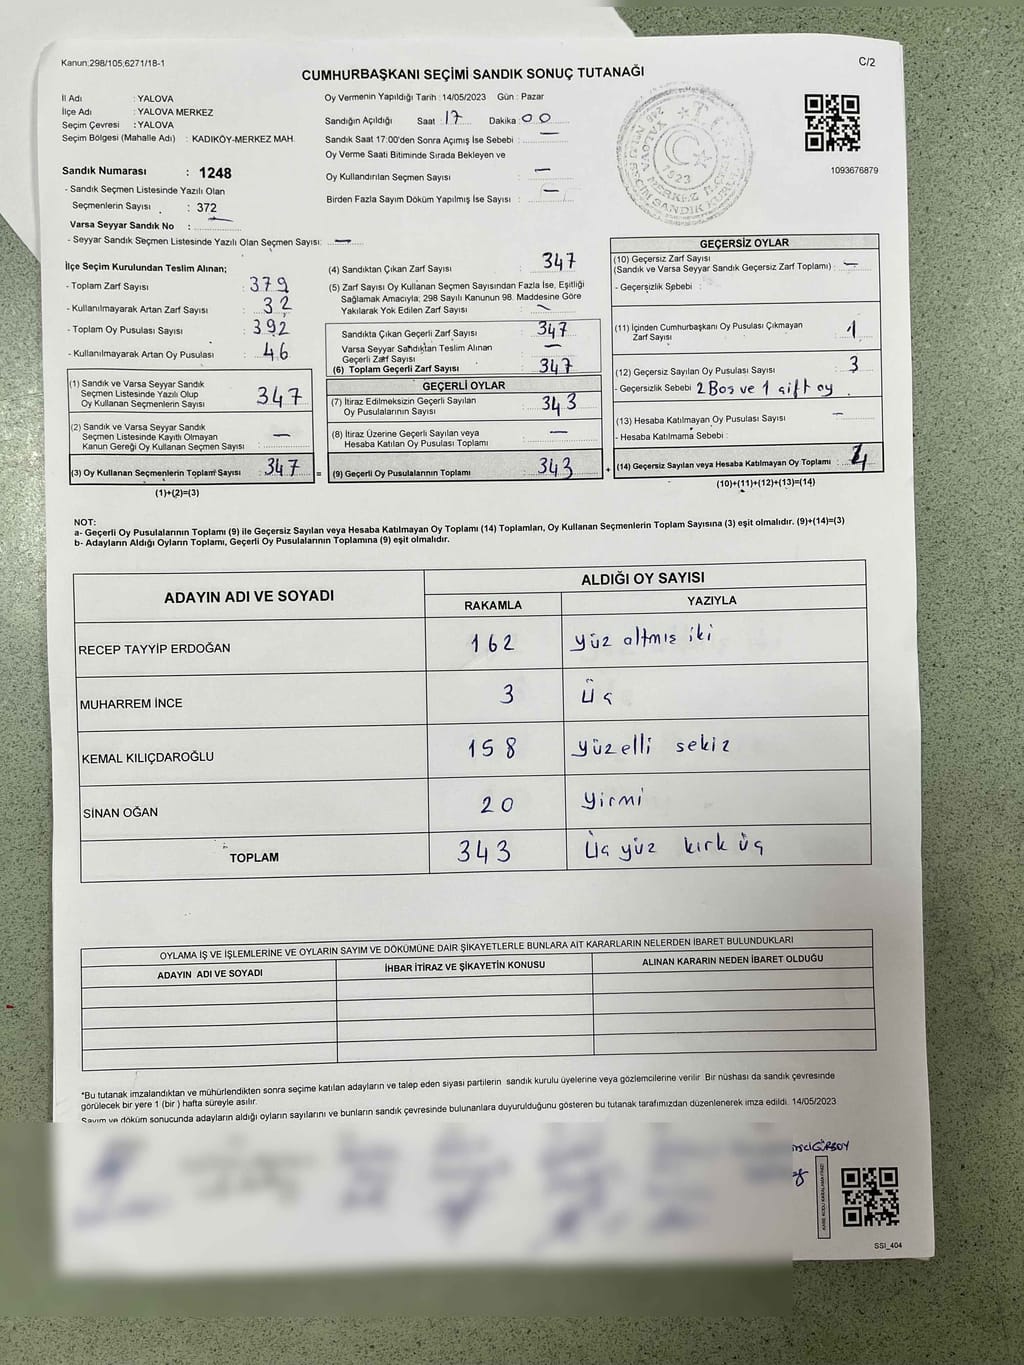 Kanun;298/105;6271/18-1
C/2
CUMHURBAŞKANI SEÇİMİ SANDIK SONUÇ TUTANAĞI
İl Adı : YALOVA
İlçe Adı : YALOVA MERKEZ
Seçim Çevresi : YALOVA
Seçim Bölgesi (Mahalle Adı) : KADIKÖY-MERKEZ MAH.
Sandık Numarası : 1248
- Sandık Seçmen Listesinde Yazılı Olan
Seçmenlerin Sayısı : 372
Varsa Seyyar Sandık No :
- Seyyar Sandık Seçmen Listesinde Yazılı Olan Seçmen Sayısı: —
Oy Vermenin Yapıldığı Tarih : 14/05/2023 Gün : Pazar
Sandığın Açıldığı Saat 17 Dakika 00
Sandık Saat 17:00'den Sonra Açımış İse Sebebi : —
Oy Verme Saati Bitiminde Sırada Bekleyen ve
Oy Kullandırılan Seçmen Sayısı : —
Birden Fazla Sayım Döküm Yapılmış İse Sayısı : —
1923
1093676879
İlçe Seçim Kurulundan Teslim Alınan;
- Toplam Zarf Sayısı : 379
- Kullanılmayarak Artan Zarf Sayısı : 32
- Toplam Oy Pusulası Sayısı : 392
- Kullanılmayarak Artan Oy Pusulası : 46
(1) Sandık ve Varsa Seyyar Sandık
Seçmen Listesinde Yazılı Olup
Oy Kullanan Seçmenlerin Sayısı : 347
(2) Sandık ve Varsa Seyyar Sandık
Seçmen Listesinde Kayıtlı Olmayan
Kanun Gereği Oy Kullanan Seçmen Sayısı : —
(3) Oy Kullanan Seçmenlerin Toplam Sayısı : 347 =
(1)+(2)=(3)
(4) Sandıktan Çıkan Zarf Sayısı : 347
(5) Zarf Sayısı Oy Kullanan Seçmen Sayısından Fazla İse, Eşitliği
Sağlamak Amacıyla; 298 Sayılı Kanunun 98. Maddesine Göre
Yakılarak Yok Edilen Zarf Sayısı : —
Sandıkta Çıkan Geçerli Zarf Sayısı : 347
Varsa Seyyar Sandıktan Teslim Alınan
Geçerli Zarf Sayısı : —
(6) Toplam Geçerli Zarf Sayısı : 347
GEÇERLİ OYLAR
(7) İtiraz Edilmeksizin Geçerli Sayılan
Oy Pusulalarının Sayısı : 343
(8) İtiraz Üzerine Geçerli Sayılan veya
Hesaba Katılan Oy Pusulası Toplamı : —
(9) Geçerli Oy Pusulalarının Toplamı : 343 +
GEÇERSİZ OYLAR
(10) Geçersiz Zarf Sayısı
(Sandık ve Varsa Seyyar Sandık Geçersiz Zarf Toplamı) : —
- Geçersizlik Sebebi :
(11) İçinden Cumhurbaşkanı Oy Pusulası Çıkmayan
Zarf Sayısı : 1
(12) Geçersiz Sayılan Oy Pusulası Sayısı : 3
- Geçersizlik Sebebi : 2 Boş ve 1 çift oy
(13) Hesaba Katılmayan Oy Pusulası Sayısı : —
- Hesaba Katılmama Sebebi :
(14) Geçersiz Sayılan veya Hesaba Katılmayan Oy Toplamı : 4
(10)+(11)+(12)+(13)=(14)
NOT:
a- Geçerli Oy Pusulalarının Toplamı (9) ile Geçersiz Sayılan veya Hesaba Katılmayan Oy Toplamı (14) Toplamları, Oy Kullanan Seçmenlerin Toplam Sayısına (3) eşit olmalıdır. (9)+(14)=(3)
b- Adayların Aldığı Oyların Toplamı, Geçerli Oy Pusulalarının Toplamına (9) eşit olmalıdır.
ADAYIN ADI VE SOYADI ALDIĞI OY SAYISI
RAKAMLA YAZIYLA
RECEP TAYYİP ERDOĞAN 162 yüz altmış iki
MUHARREM İNCE 3 üç
KEMAL KILIÇDAROĞLU 158 yüzelli sekiz
SİNAN OĞAN 20 yirmi
TOPLAM 343 üç yüz kırk üç
OYLAMA İŞ VE İŞLEMLERİNE VE OYLARIN SAYIM VE DÖKÜMÜNE DAİR ŞİKAYETLERLE BUNLARA AİT KARARLARIN NELERDEN İBARET BULUNDUKLARI
ADAYIN ADI VE SOYADI İHBAR İTİRAZ VE ŞİKAYETİN KONUSU ALINAN KARARIN NEDEN İBARET OLDUĞU
*Bu tutanak imzalandıktan ve mühürlendikten sonra seçime katılan adayların ve talep eden siyasi partilerin sandık kurulu üyelerine veya gözlemcilerine verilir. Bir nüshası da sandık çevresinde
görülecek bir yere 1 (bir ) hafta süreyle asılır.
Sayım ve döküm sonucunda adayların aldığı oyların sayılarını ve bunların sandık çevresinde bulunanlara duyurulduğunu gösteren bu tutanak tarafımızdan düzenlenerek imza edildi. 14/05/2023
GÜRSOY
SSI_404